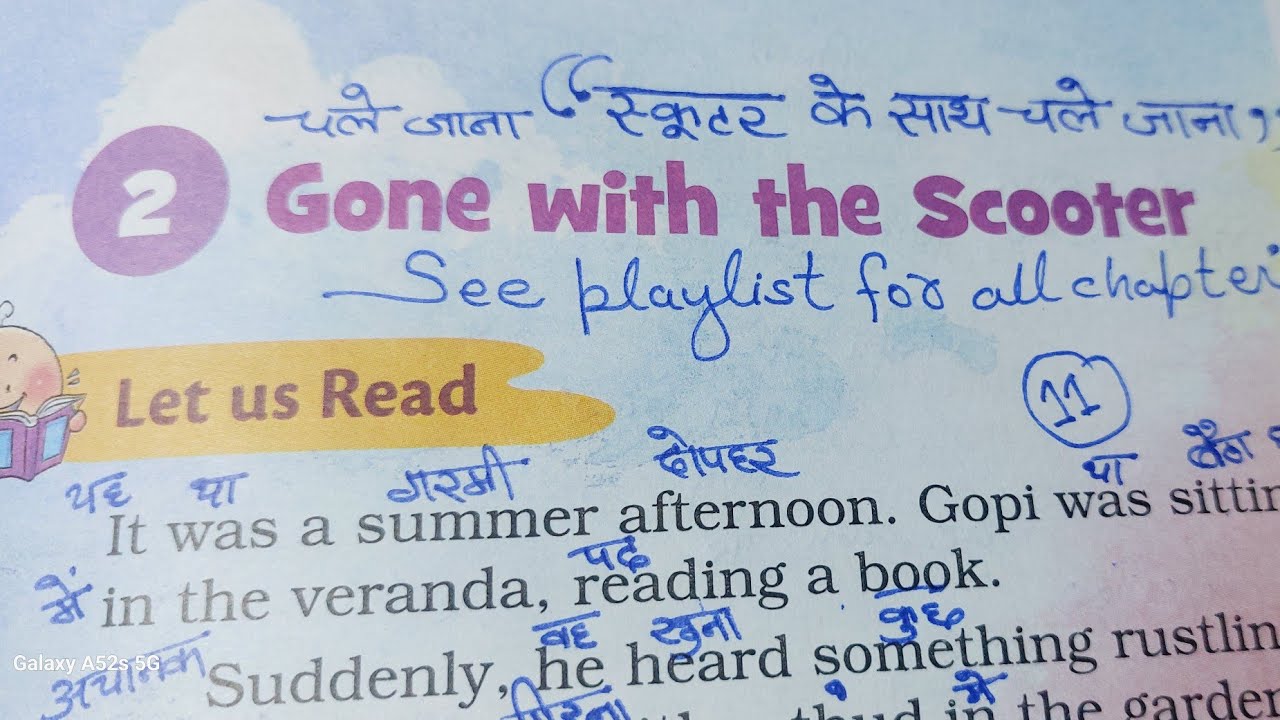 चले जाना “स्कूटर के साथ चले जाना”
2 Gone with the Scooter
See playlist for all chapter
Let us Read
11
यह था गरमी दोपहर था
It was a summer afternoon. Gopi was sittin
में पढ़
in the veranda, reading a book.
अचानक वह सुना कुछ
Suddenly, he heard something rustlin
गिरना में
in the garden
Galaxy A52s 5G